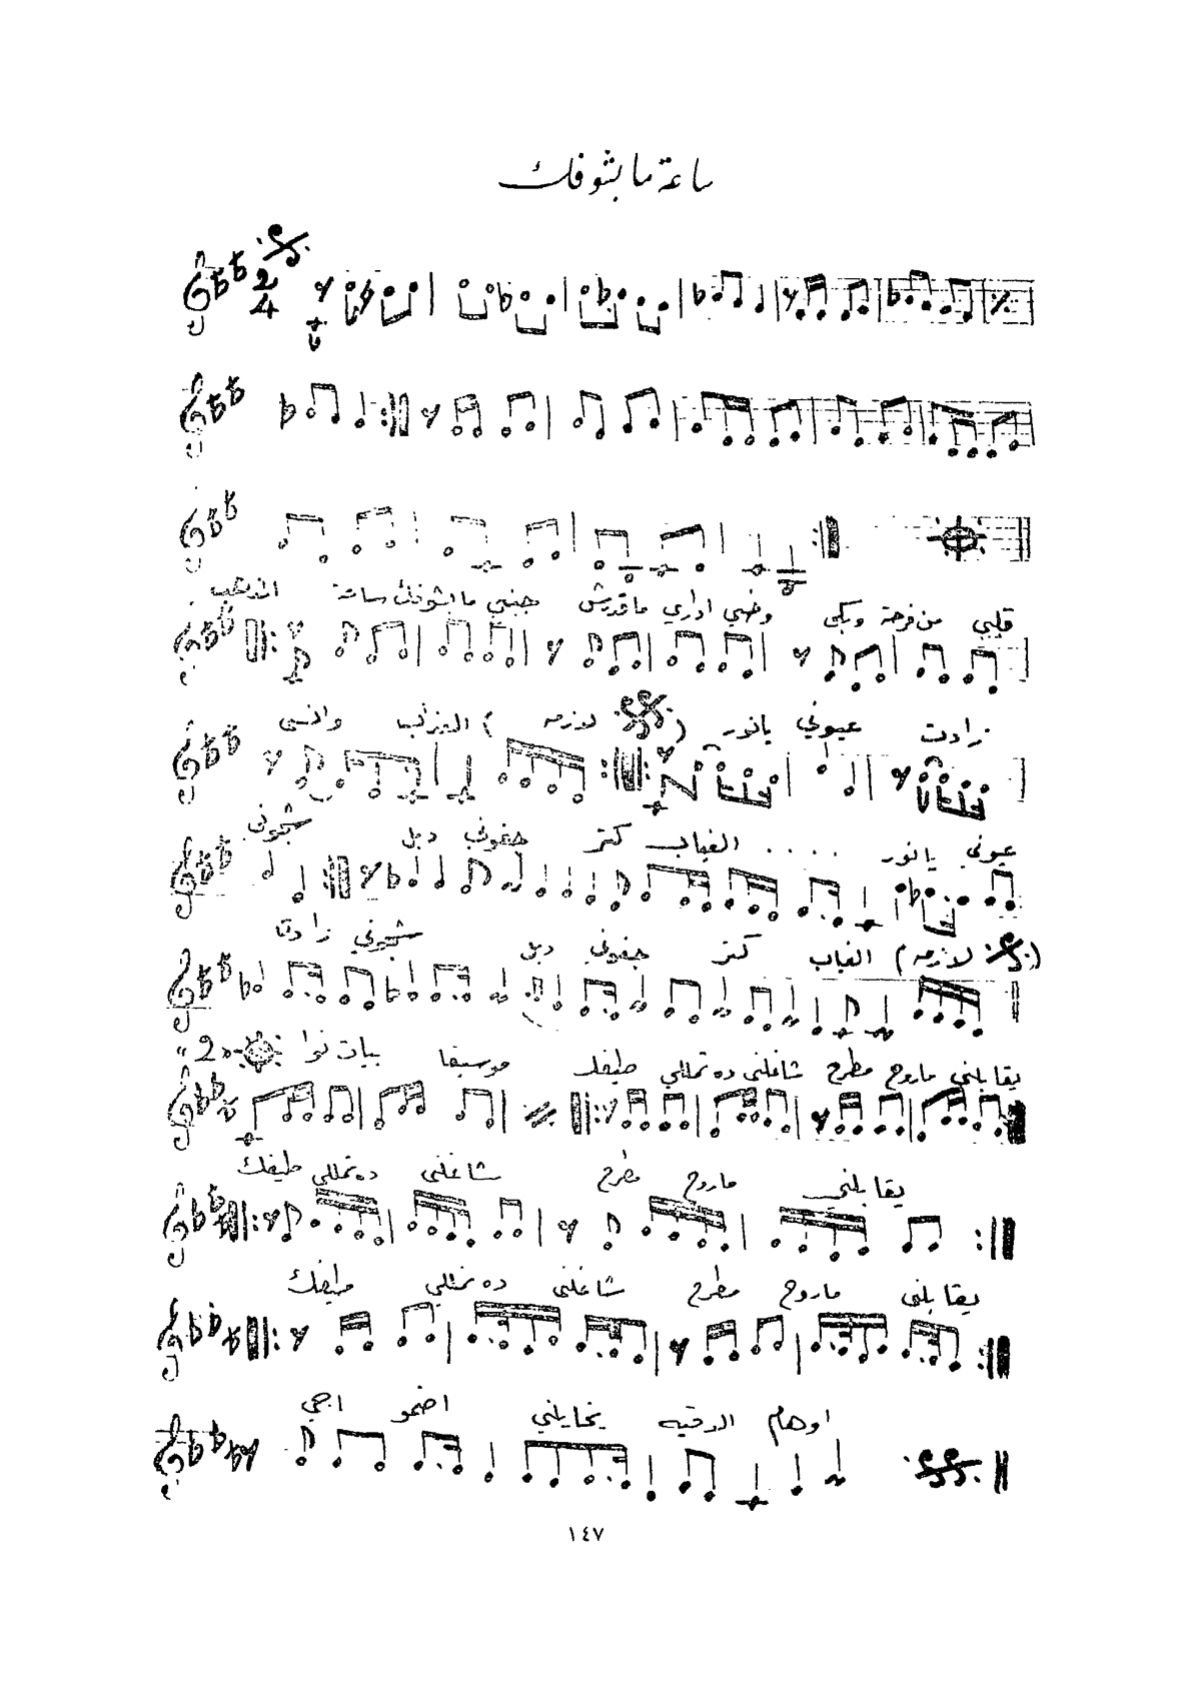 ساعة ما بشوفك
2
4
المذهب ساعة ما بشوفك جنبي ماقدرش اداري وخبي وبكى من فرحة قلبي
وانسى العزاب ( لازمه ) يانور عيوني زادت
شجوني دبل جفوني كتر الغياب .... يانور عيوني
زادت شجوني دبل جفوني كتر الغياب ( لازمه )
"2" بيات نوا موسيقا طيفك ده تمللي شاغلنى مطرح ماروح يقابلني
طيفك ده تمللي شاغلنى مطرح ماروح يقابلني
طيفك ده تمللي شاغلنى مطرح ماروح يقابلنى
اجي اضمو يخايلني الدقيه اوهام
١٤٧